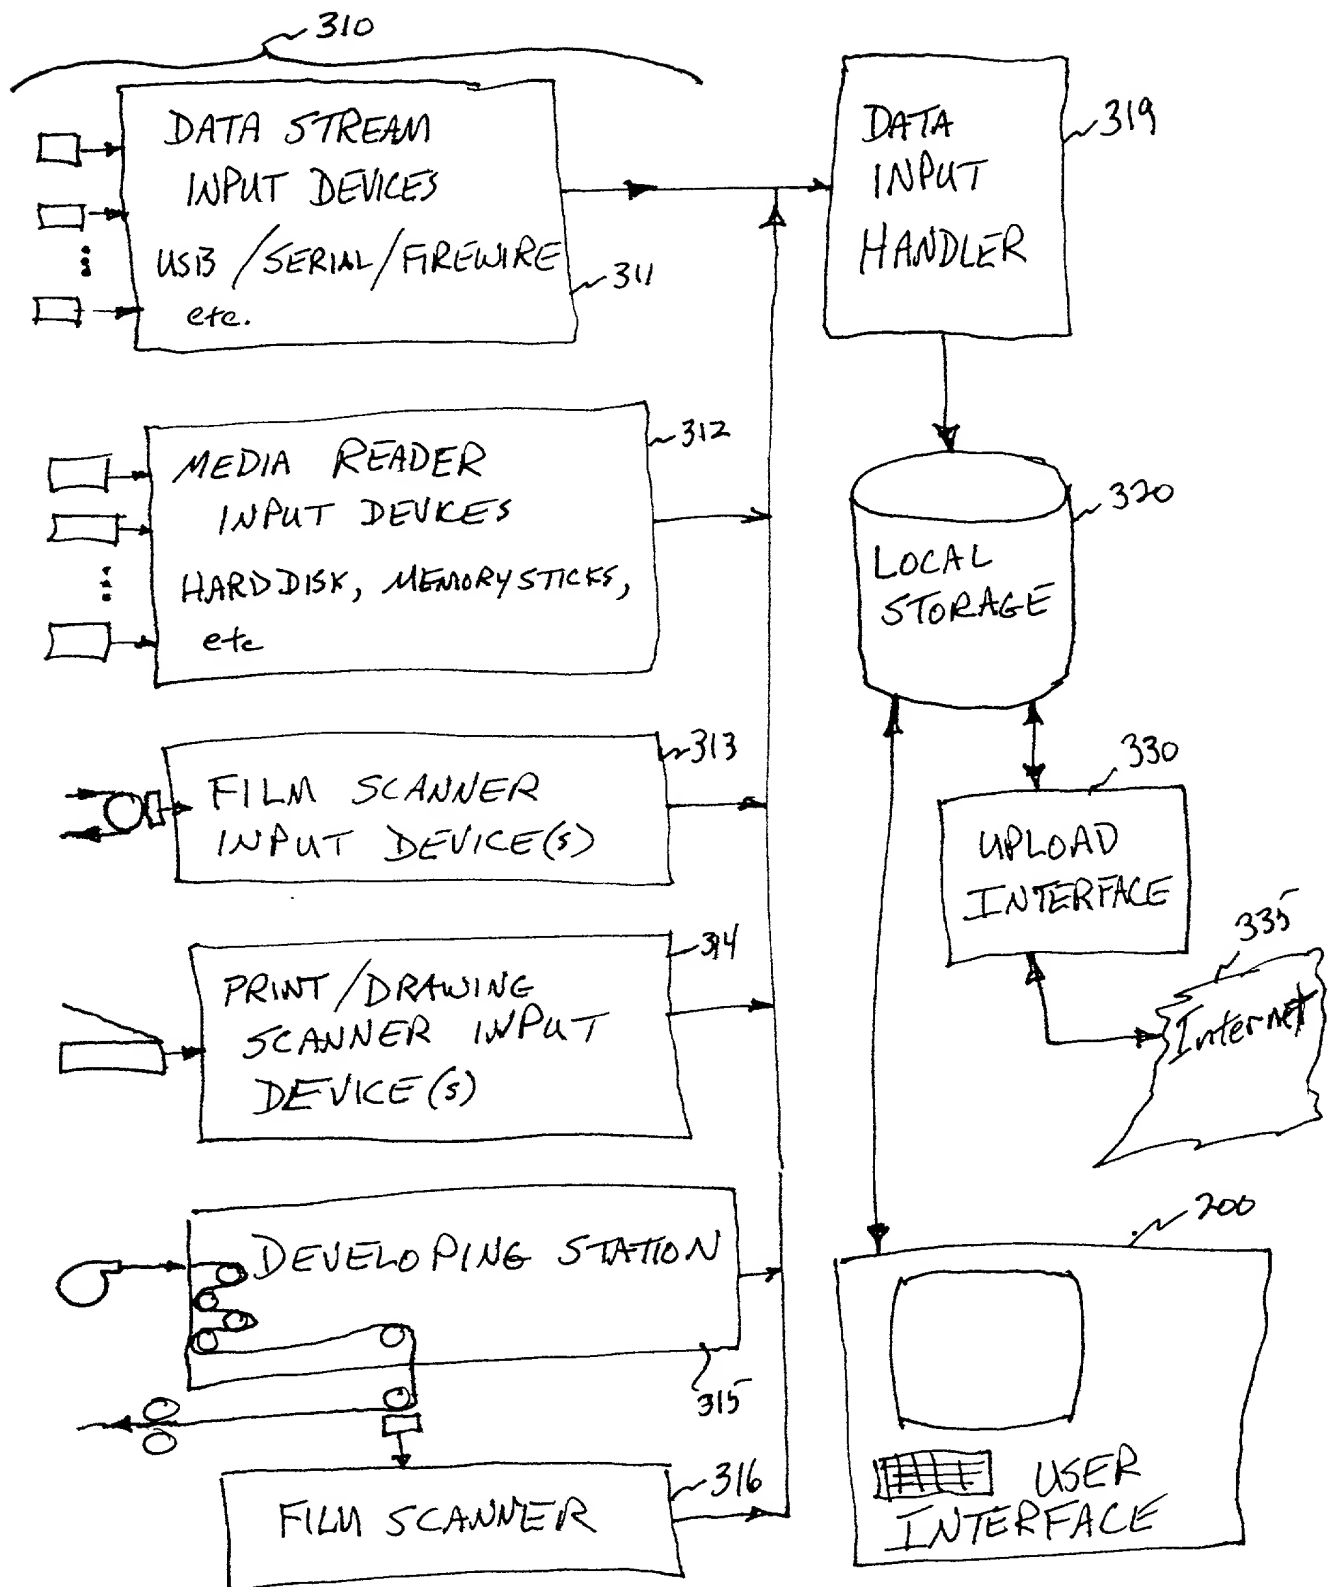 310
DATA STREAM
INPUT DEVICES
USB / SERIAL / FIREWIRE
etc.
311
MEDIA READER
INPUT DEVICES
HARD DISK, MEMORY STICKS,
etc
312
FILM SCANNER
INPUT DEVICE(S)
313
PRINT / DRAWING
SCANNER INPUT
DEVICE(S)
314
DEVELOPING STATION
315
FILM SCANNER
316
DATA
INPUT
HANDLER
319
LOCAL
STORAGE
320
330
UPLOAD
INTERFACE
335
Internet
200
USER
INTERFACE